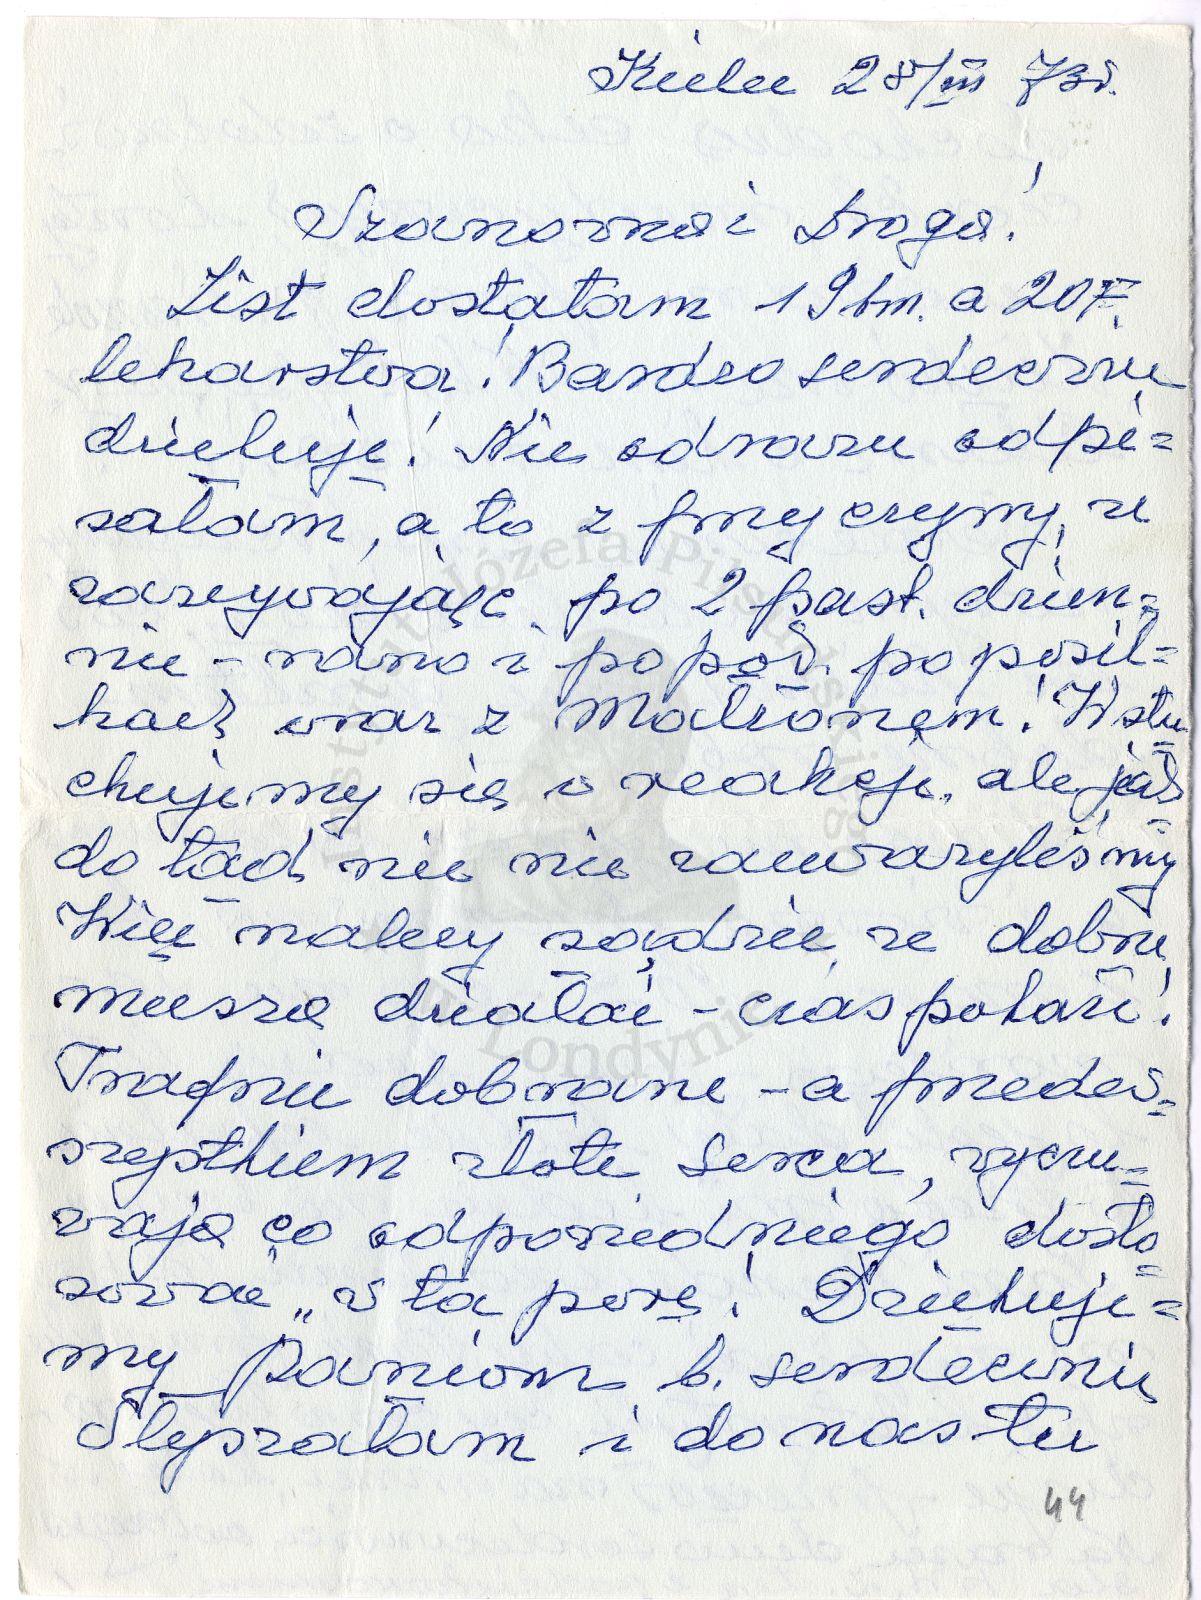 Kielce 28/III 73r.
Szanowna i Droga!
List dostałam 19 bm. a 20 F.
lekarstwa! Bardzo serdecznie
dziękuję! Nie odrazu odpi=
sałam, a to z przyczyny, że
zażywając po 2 past. dzien=
nie - rano i popoł. po posił=
kach wraz z Malżonem! Wsłu
chujemy się o reakcji, ale jak
do tąd nic nie zauważyliśmy
Więc należy sądzić, że dobrze
muszą działać - czas pokaże!
Trafnie dobrane - a przede=
wszystkiem złote serca, wyczu=
wają co odpowiedniego dosto=
sować "w tą porę! Dziękuje=
my Paniom b. serdecznie
Słyszałam i do nas tu
44
Instytut Józefa Piłsudskiego
w Londynie